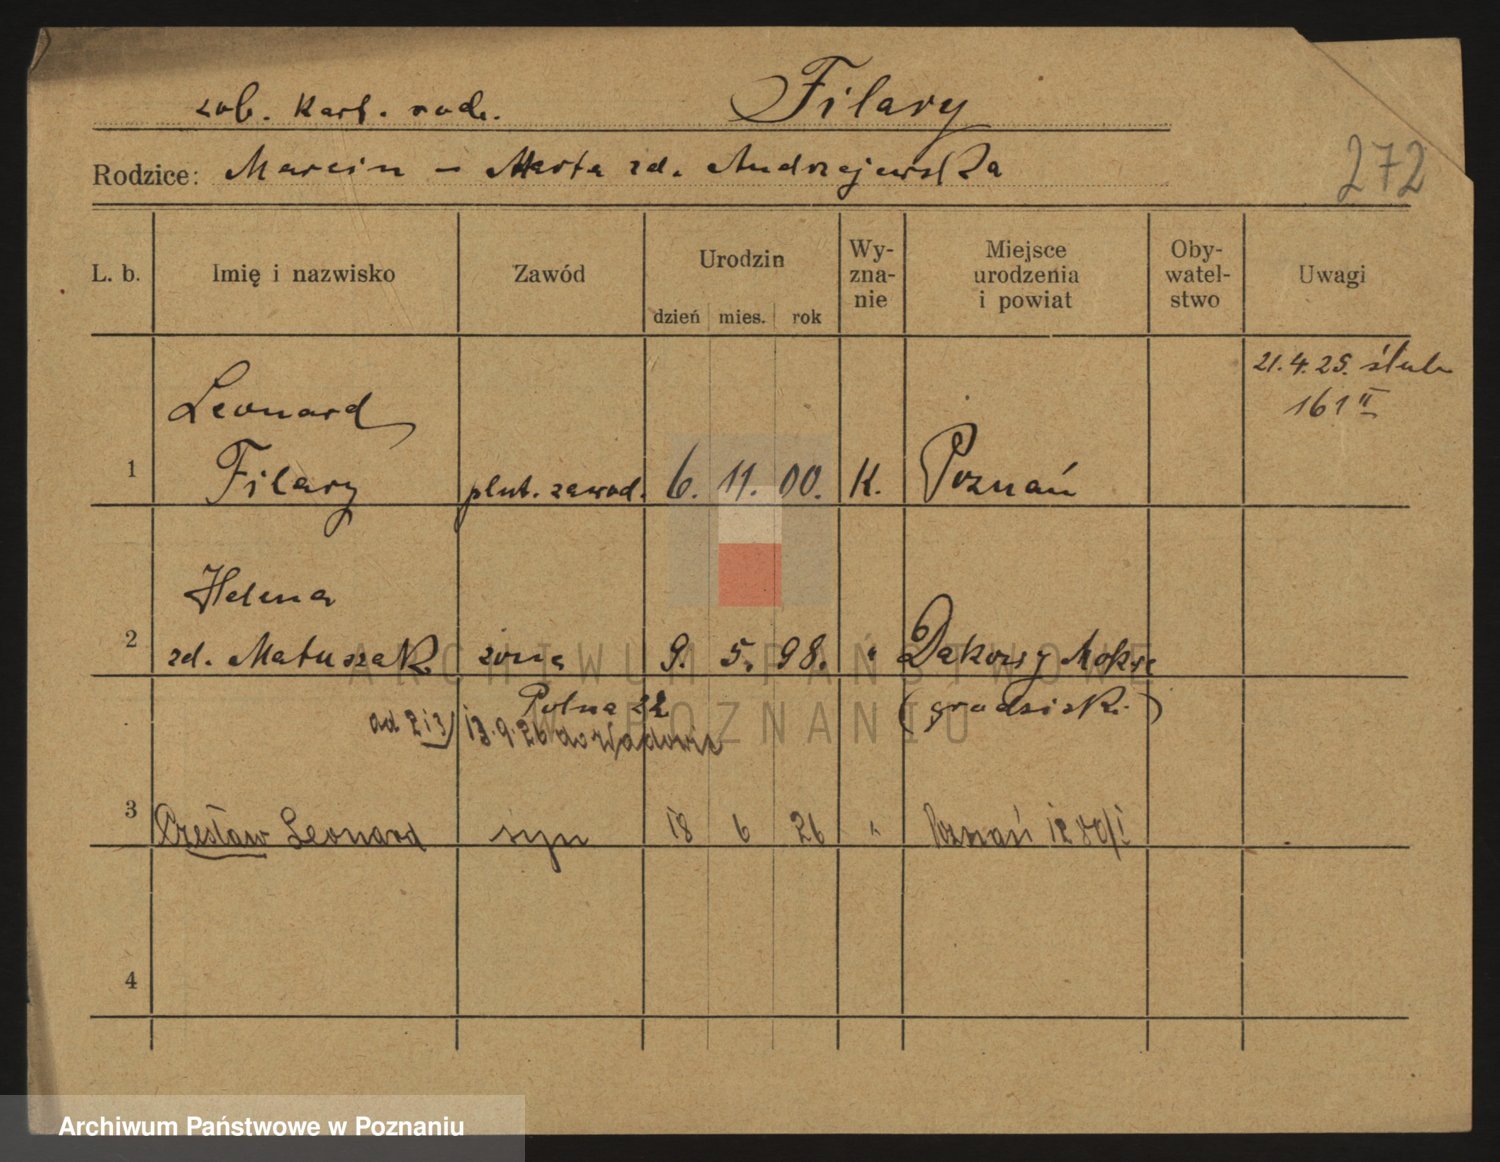 zob. Kart. rodz. Filary
Rodzice: Marcin – Marta zd. Andrzejewska
272
L. b. Imię i nazwisko Zawód Urodzin dzień mies. rok Wy-zna-nie Miejsce urodzenia i powiat Oby-watel-stwo Uwagi
21.4.25. ślub
161 II
Leonard
1 Filary plut. zawod. 6. 11. 00. K. Poznań
Helena
2 zd. Matuszak żona 9. 5. 98. " Dakowy Mokre
Polna 22 (grodzisk.)
ad 2 i 3) 13.9.26 do
3 Czesław Leonard syn 18 6 26 " Poznań
4
ARCHIWUM PAŃSTWOWE
W POZNANIU
Archiwum Państwowe w Poznaniu